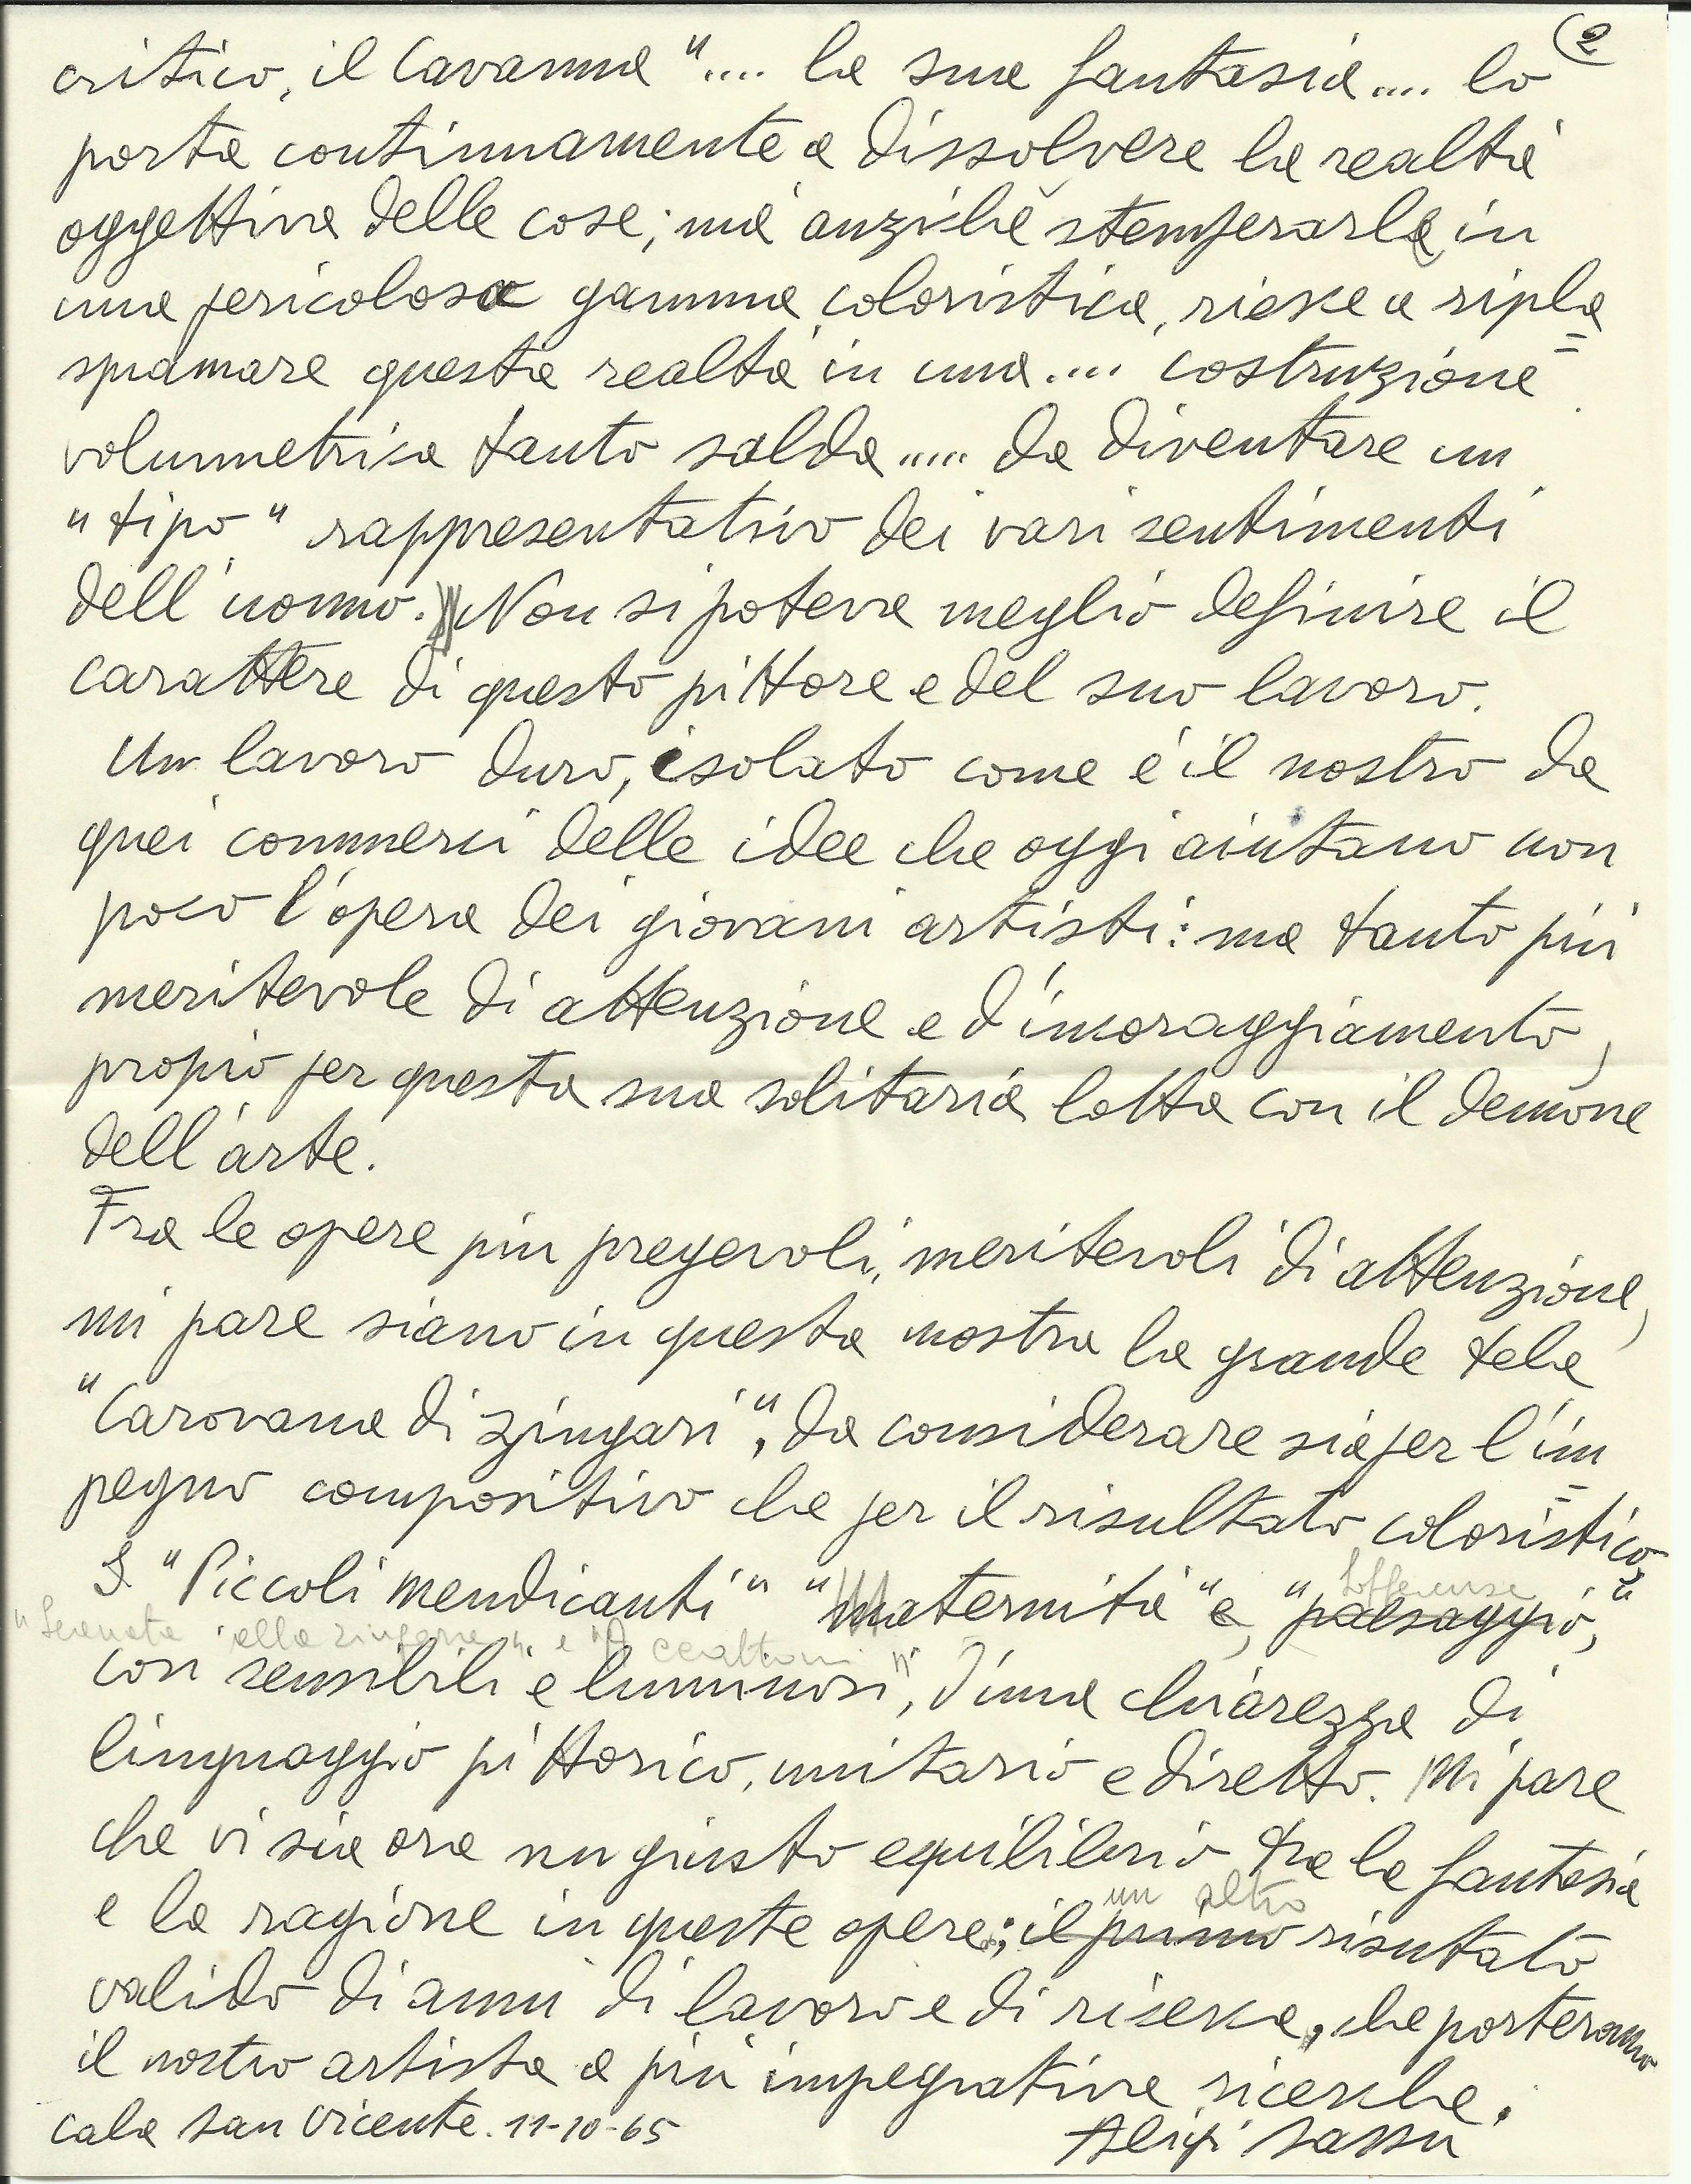 (2
critico, il Cavanna ".... la sua fantasia.... lo
porta continuamente a dissolvere la realtà
oggettiva delle cose; ma anzichè stemperarla in
una pericolosa gamma coloristica, riesce a ripla=
smamare questa realtà in una.... costruzione
volumetrica tanto salda..... da diventare un
"tipo" rappresentativo dei vari sentimenti
dell'uomo. Non si poteva meglio definire il
carattere di questo pittore e del suo lavoro.
Un lavoro duro, isolato come è il nostro da
quei commerci delle idee che oggi aiutano non
poco l'opera dei giovani artisti: ma tanto più
meritevole di attenzione e d'incoraggiamento,
proprio per questa sua solitaria lotta con il demone
dell'arte.
Fra le opere più pregevoli, meritevoli di attenzione,
mi pare siano in questa mostra la grande tela
"Carovana di zingari", da considerare sia per l'im=
pegno compositivo che per il risultato coloristico,
I "Piccoli mendicanti" "Maternità" e, "paesaggio,"
Sofferenze
"Serenata alla zingara" e "
così sensibili e luminosi", d'una chiarezza di
linguaggio pittorico, unitario e diretto. Mi pare
che vi sia ora un giusto equilibrio tra la fantasia
un altro
e la ragione in queste opere; il primo risutato
valido di anni di lavoro e di ricerca, che porteranno
il nostro artista a più impegnative ricerche.
cala San Vicente. 11-10-65
Aligi Sassu